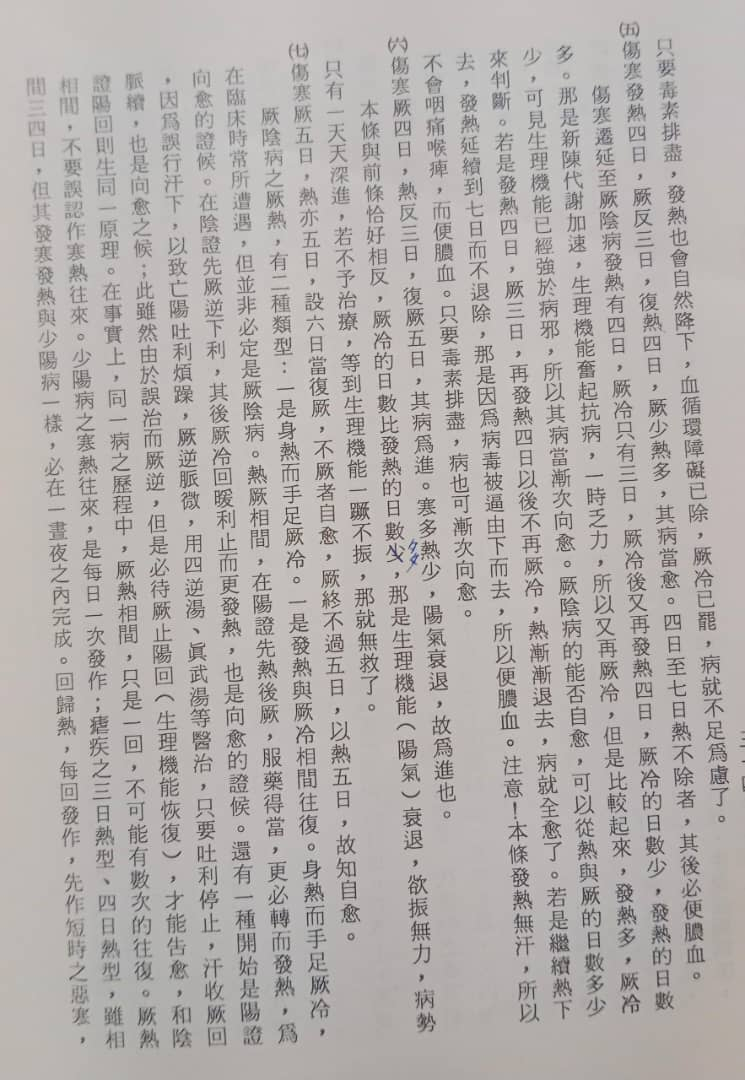 只要毒素排盡，發熱也會自然降下，血循環障礙已除，厥冷已罷，病就不足爲慮了。
㈤傷寒發熱四日，厥反三日，復熱四日，厥少熱多，其病當愈。四日至七日熱不除者，其後必便膿血。
傷寒遷延至厥陰病發熱有四日，厥冷只有三日，厥冷後又再發熱四日，厥冷的日數少，發熱的日數
多。那是新陳代謝加速，生理機能奮起抗病，一時乏力，所以又再厥冷，但是比較起來，發熱多，厥冷
少，可見生理機能已經強於病邪，所以其病當漸次向愈。厥陰病的能否自愈，可以從熱與厥的日數多少
來判斷。若是發熱四日，厥三日，再發熱四日以後不再厥冷，熱漸漸退去，病就全愈了。若是繼續熱下
去，發熱延續到七日而不退除，那是因爲病毒被逼由下而去，所以便膿血。注意！本條發熱無汗，所以
不會咽痛喉痺，而便膿血。只要毒素排盡，病也可漸次向愈。
㈥傷寒厥四日，熱反三日，復厥五日，其病爲進。寒多熱少，陽氣衰退，故爲進也。
多
本條與前條恰好相反，厥冷的日數比發熱的日數少，那是生理機能（陽氣）衰退，欲振無力，病勢
只有一天天深進，若不予治療，等到生理機能一蹶不振，那就無救了。
㈦傷寒厥五日，熱亦五日，設六日當復厥，不厥者自愈，厥終不過五日，以熱五日，故知自愈。
厥陰病之厥熱，有二種類型：一是身熱而手足厥冷。一是發熱與厥冷相間往復。身熱而手足厥冷，
在臨床時常所遭遇，但並非必定是厥陰病。熱厥相間，在陽證先熱後厥，服藥得當，更必轉而發熱，爲
向愈的證候。在陰證先厥逆下利，其後厥冷回暖利止而更發熱，也是向愈的證候。還有一種開始是陽證
，因爲誤行汗下，以致亡陽吐利煩躁，厥逆脈微，用四逆湯、眞武湯等醫治，只要吐利停止，汗收厥回
脈續，也是向愈之候；此雖然由於誤治而厥逆，但是必待厥止陽回（生理機能恢復），才能告愈，和陰
證陽回則生同一原理。在事實上，同一病之歷程中，厥熱相間，只是一回，不可能有數次的往復。厥熱
相間，不要誤認作寒熱往來。少陽病之寒熱往來，是每日一次發作；瘧疾之三日熱型、四日熱型，雖相
間三四日，但其發寒發熱與少陽病一樣，必在一晝夜之內完成。回歸熱，每回發作，先作短時之惡寒，